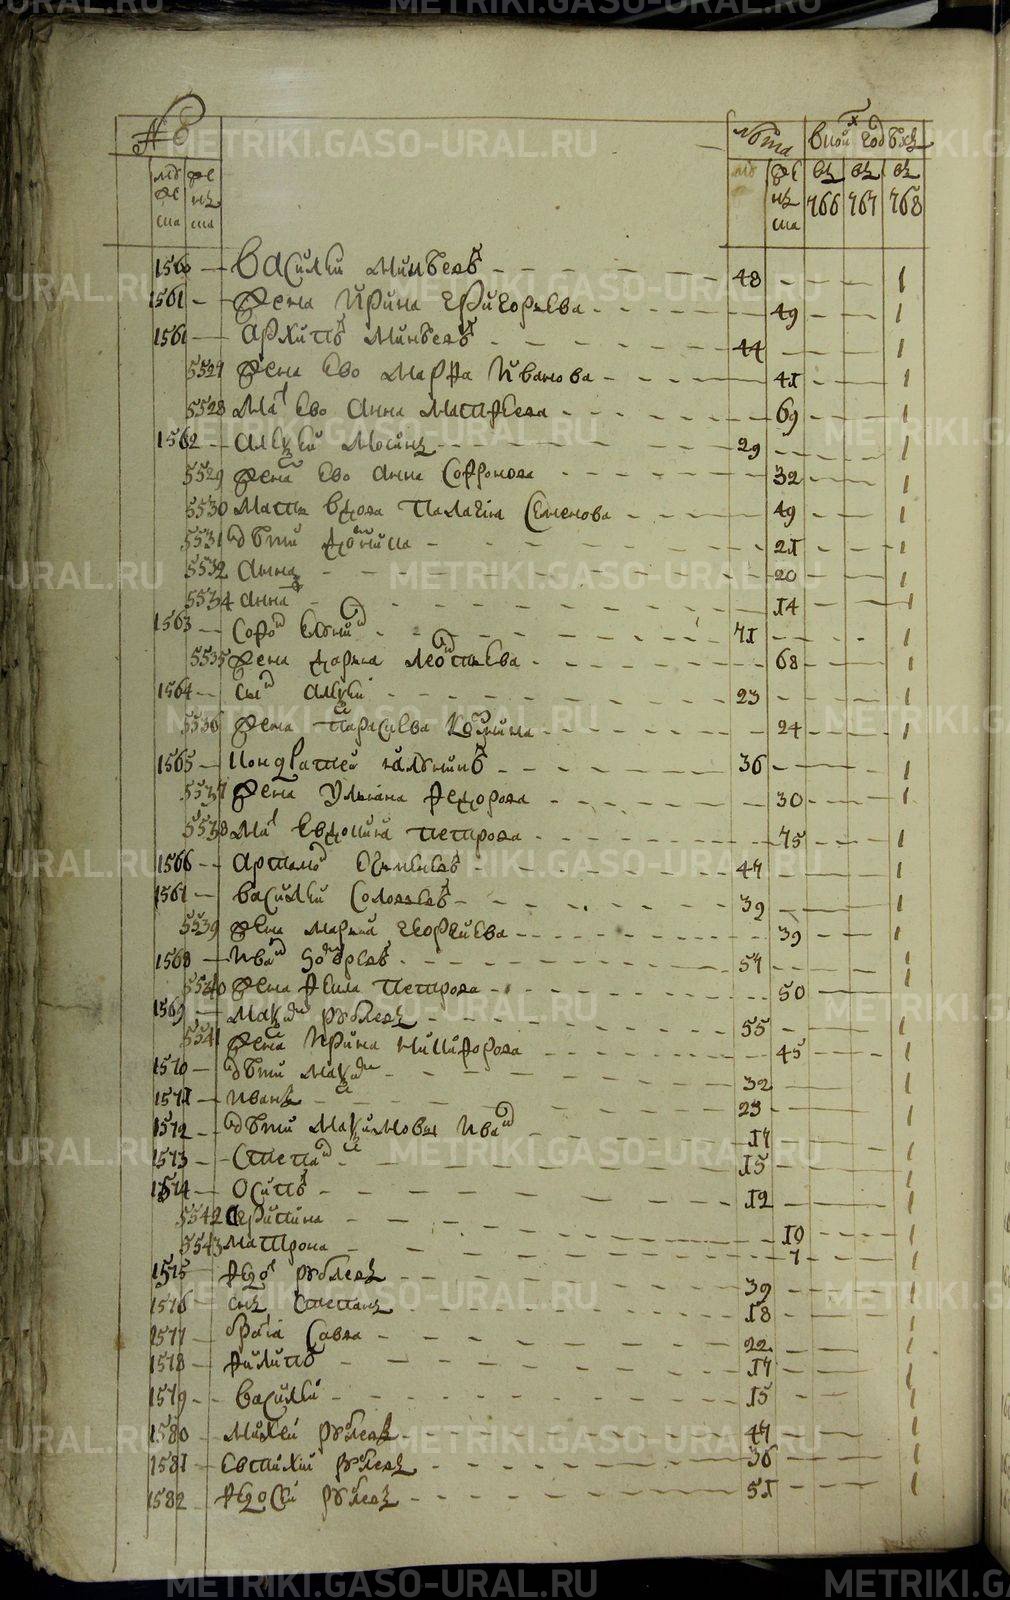 №
лѣта
в кои год
муж женска
муж женска
в 766 в 767 в 768
1560 Василей Минѣевъ 48 1
1561 Жена Ирина Григорьева 49 1
1561 Архипъ Минѣевъ 44 1
5527 Жена Ево Марфа Иванова 41 1
5528 Мат Ево Анна Матфеева 69 1
1562 Алексѣй Мосинъ 29 1
5529 Жена Ево Анна Софронова 32 1
5530 Мать вдова Палагѣя Семенова 49 1
5531 дѣти Домина 21 1
5532 Анна 20 1
5534 Анна 14 1
1563 71 1
5535 Жена Дарья Леонтьева 68 1
1564 сын Алексѣй 23 1
5536 Жена Парасковья 24 1
1565 Кондратей 36 1
5537 Жена Ульяна Федорова 30 1
5538 Мат Евдокия Петрова 75 1
1566 Артемей 47 1
1561 Василей Соловьевъ 39 1
5539 Жена Марья Георгиева 39 1
1568 Иван 57 1
5540 Жена Фекла Петрова 50 1
1569 Максим Рублевъ 55 1
5541 Жена Ирина Никифорова 45 1
1570 дѣти Максим 32 1
1571 Иванъ 23 1
1572 дѣти Максимовы Иван 17 1
1573 Степан 15 1
1574 Осипъ 12 1
5542 Крипина 10
5543 Матрона 7 1
1575 Федот Рублевъ 39 1
1576 сынъ Степанъ 18 1
1577 братья Савва 22 1
1578 Филипъ 17 1
1579 Василей 15 1
1580 Михей Рублевъ 47 1
1581 Евтихий Рублевъ 36 1
1582 Федосей Рублевъ 51 1
METRIKI.GASO-URAL.RU